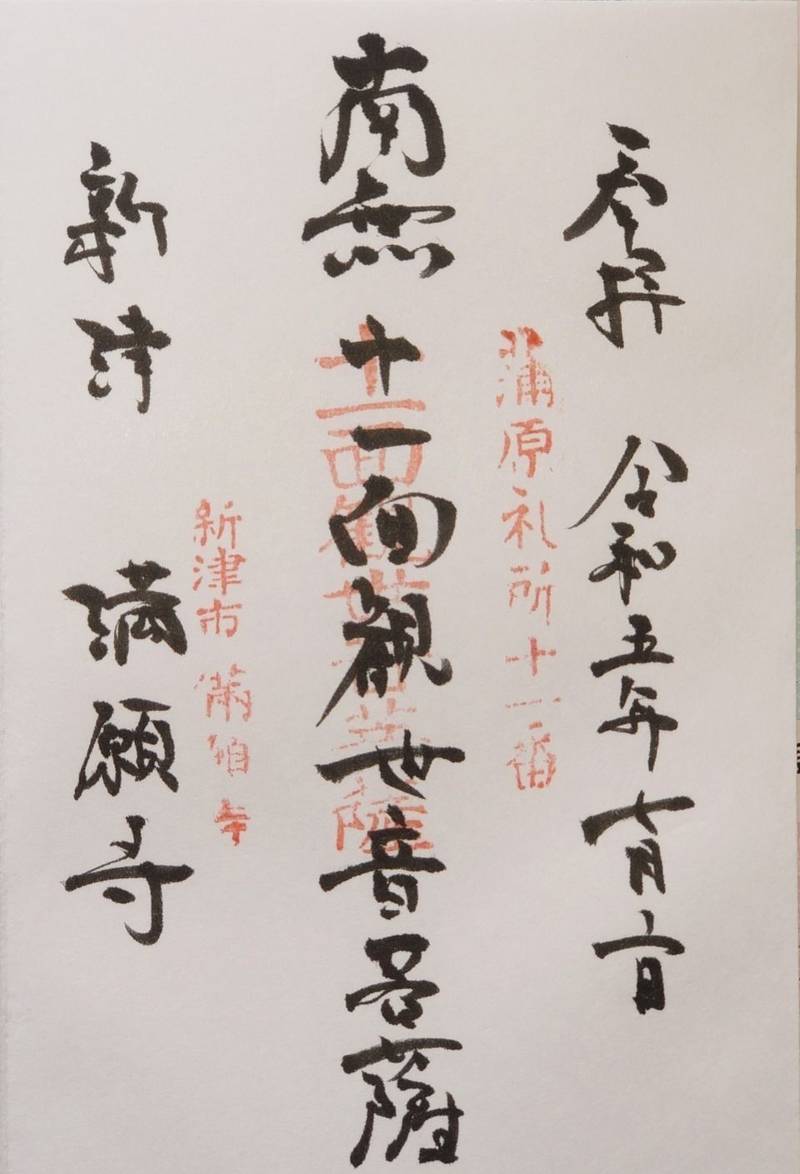 参拝 令和五年七月 日
蒲原礼所十一番
南無十一面観世音菩薩
十一面観世音菩薩
新津市 満願寺
新津 満願寺